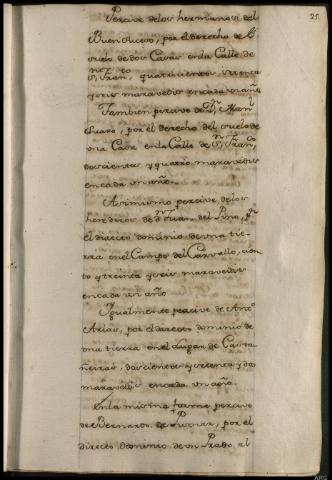 25.
Percive delos hermanos del
Buen Suceso, por el derecho de
suelo de dos Casas en la Calle de
Sn. Franco, quatrocientos
y seis maravedis en cada un año
Tambien percive de Dn. Manl
por el derecho del suelo de
una Casa en la Calle de Sn. Franco,
doscientos y quatro maravedis
en cada un año.
Asimismo percive delos
herederos de Dn. Juan del Pino, pr.
el directo dominio de una tie-
rra en el Campo del Carvallo, cien-
to y treinta y seis maravedis
en cada un año
Igualmente percive de Anto.
Arias, por el directo dominio de
una tierra en el Lugar de Casta-
ñeiras, doscientos y setenta y dos
maravedis en cada un año.
En la misma forma percive
de Bernardo de Pumar, por el
directo dominio de un Prado, al